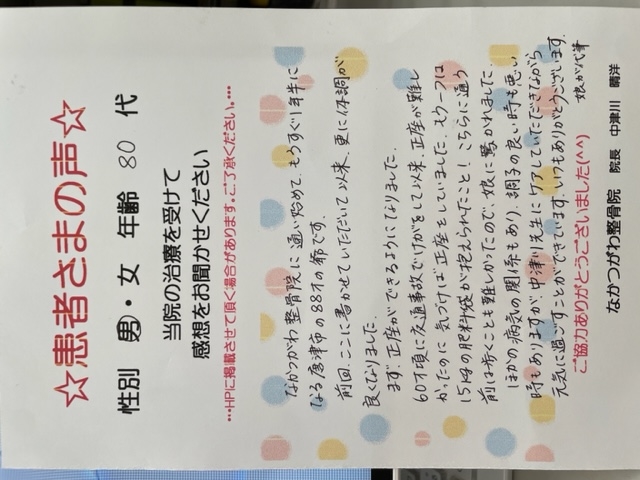 ☆患者さまの声☆
性別 男・女 年齢 80 代
当院の治療を受けて
感想をお聞かせください
・・・HPに掲載させて頂く場合があります。ご了承ください。・・・
なかつがわ整骨院に通い始めて、もうすぐ1年半に
なる唐津市の88才の爺です。
前回、ここに書かせていただいて以来、更に体調が
良くなりました。
まず正座ができるようになりました。
60才頃に交通事故でけがをして以来、正座が難し
かったのに気づけば正座をしていました。もう一つは
15kgの肥料袋が抱えられたこと！こちらに通う
前は歩くことも難しかったので、娘に驚かれました。
ほかの病気の関係もあり、調子の良い時も悪い
時もありますが、中津川先生にケアしていただきながら
元気に過ごすことができています。いつもありがとうございます。
娘が代筆
ご協力ありがとうございました(^^)
なかつがわ整骨院 院長 中津川 晴洋